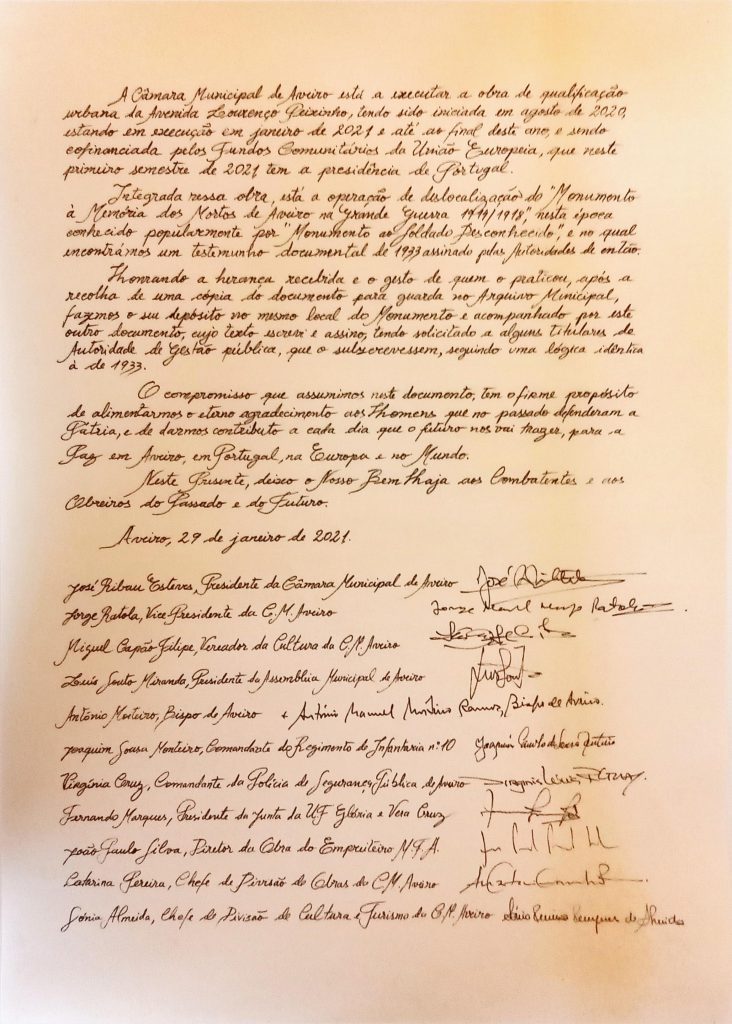 A Câmara Municipal de Aveiro está a executar a obra de qualificação
urbana da Avenida Lourenço Peixinho, tendo sido iniciada em agosto de 2020,
estando em execução em janeiro de 2021 e até ao final deste ano, e sendo
cofinanciada pelos Fundos Comunitários da União Europeia, que neste
primeiro semestre de 2021 tem a presidência de Portugal.
Integrada nessa obra, está a operação de dislocalização do "Monumento
à Memória dos Mortos de Aveiro na Grande Guerra 1914/1918", nesta época
conhecido popularmente por "Monumento ao Soldado Desconhecido", e no qual
encontrámos um testemunho documental de 1933 assinado pelas Autoridades de então.
Honrando a herança recebida e o gesto de quem o praticou, após a
recolha de uma cópia do documento para guarda no Arquivo Municipal,
fazemos o seu depósito no mesmo local do Monumento e acompanhado por este
outro documento, cujo texto escrevi e assino, tendo solicitado a alguns titulares de
Autoridade de Gestão pública, que o subscrevessem, seguindo uma lógica idêntica
à de 1933.
O compromisso que assumimos neste documento, tem o firme propósito
de alimentarmos o eterno agradecimento aos Homens que no passado defenderam a
Pátria, e de darmos contributo a cada dia que o futuro nos vai trazer, para a
Paz em Aveiro, em Portugal, na Europa e no Mundo.
Neste Presente, deixo o Nosso Bem Haja aos Combatentes e aos
Obreiros do Passado e do Futuro.
Aveiro, 29 de janeiro de 2021.
José Ribau Esteves, Presidente da Câmara Municipal de Aveiro
Jorge Ratola, Vice-Presidente da C.M. Aveiro
Miguel Capão Filipe, Vereador da Cultura da C.M. Aveiro
Luís Souto Miranda, Presidente da Assembleia Municipal de Aveiro
António Moiteiro, Bispo de Aveiro + António Manuel Moiteiro Ramos, Bispo de Aveiro.
Joaquim Sousa Monteiro, Comandante do Regimento de Infantaria nº 10
Virgínia Cruz, Comandante da Polícia de Segurança Pública de Aveiro
Fernando Marques, Presidente da Junta da UF Glória e Vera Cruz
João Paulo Silva, Diretor da Obra do Empreiteiro
Catarina Pereira, Chefe de Divisão de Obras da C.M. Aveiro
Sónia Almeida, Chefe de Divisão de Cultura e Turismo da C.M. Aveiro